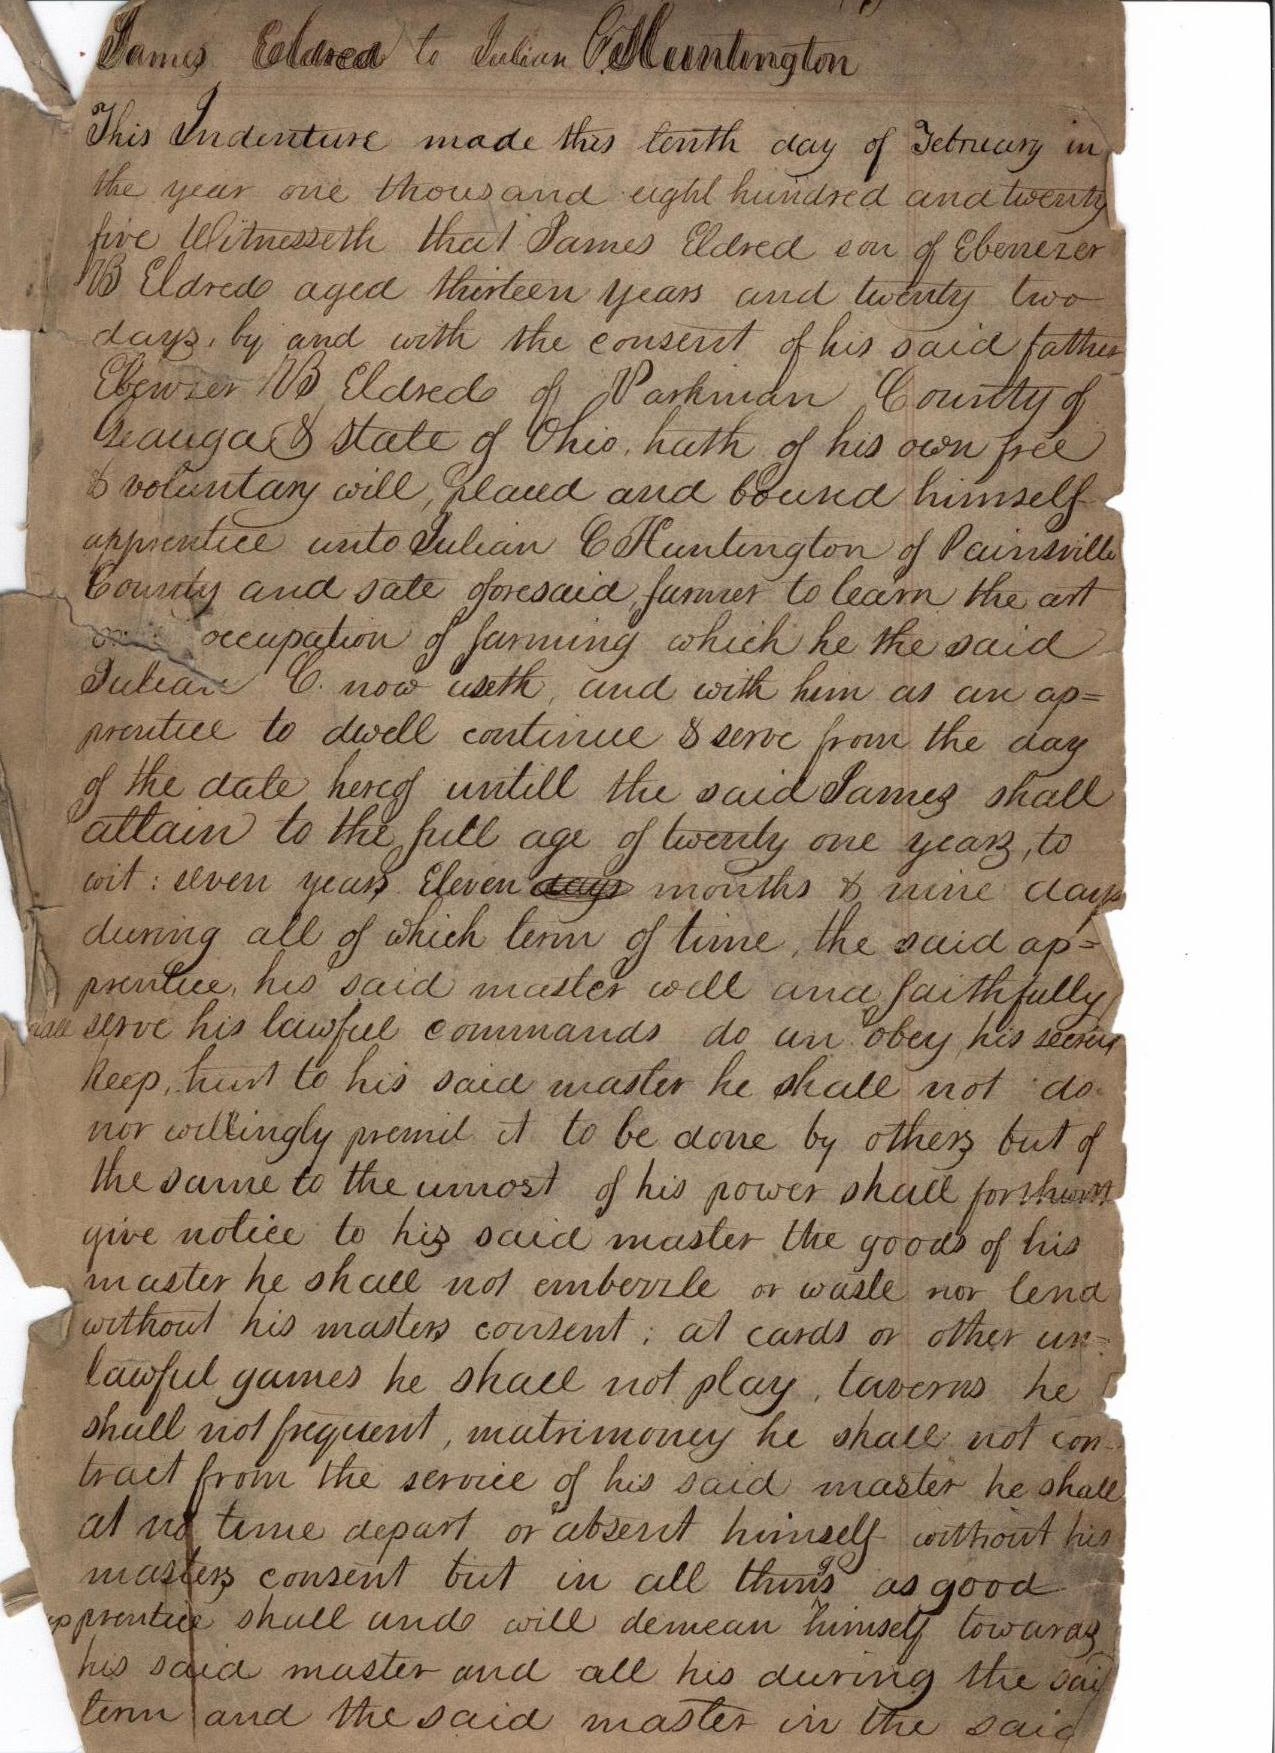 James Eldred to Julian C. Huntington
This Indenture made this tenth day of February in
the year one thousand eight hundred and twenty
five Witnesseth that James Eldred son of Ebenezer
W B Eldred aged thirteen years and twenty two
days, by and with the consent of his said father
Ebenezer W B Eldred of Parkman County of
Geauga & state of Ohio, hath of his own free
& voluntary will, placed and bound himself
apprentice unto Julian C Huntington of Painsville
County and sate aforesaid, farmer to learn the art
occupation of farming which he the said
Julian C. now useth, and with him as an ap=
prentice to dwell continue & serve from the day
of the date hereof untill the said James shall
attain to the full age of twenty one years, to
wit: seven years Eleven days months & nine days
during all of which term of time, the said ap=
prentice, his said master well and faithfully
shall serve his lawful commands do an obey his secrets
keep, hurt to his said master he shall not do
nor willingly premit it to be done by others but of
the same to the umost of his power shall forthwith
give notice to his said master the goods of his
master he shall not embezzle or waste nor lend
without his masters consent; at cards or other un=
lawful games he shall not play, taverns he
shall not frequent, matrimoney he shall not con-
tract from the service of his said master he shall
at no time depart or absent himself without his
masters consent but in all things as good
apprentice shall and will demean himself towards
his said master and all his during the said
term and the said master in the said